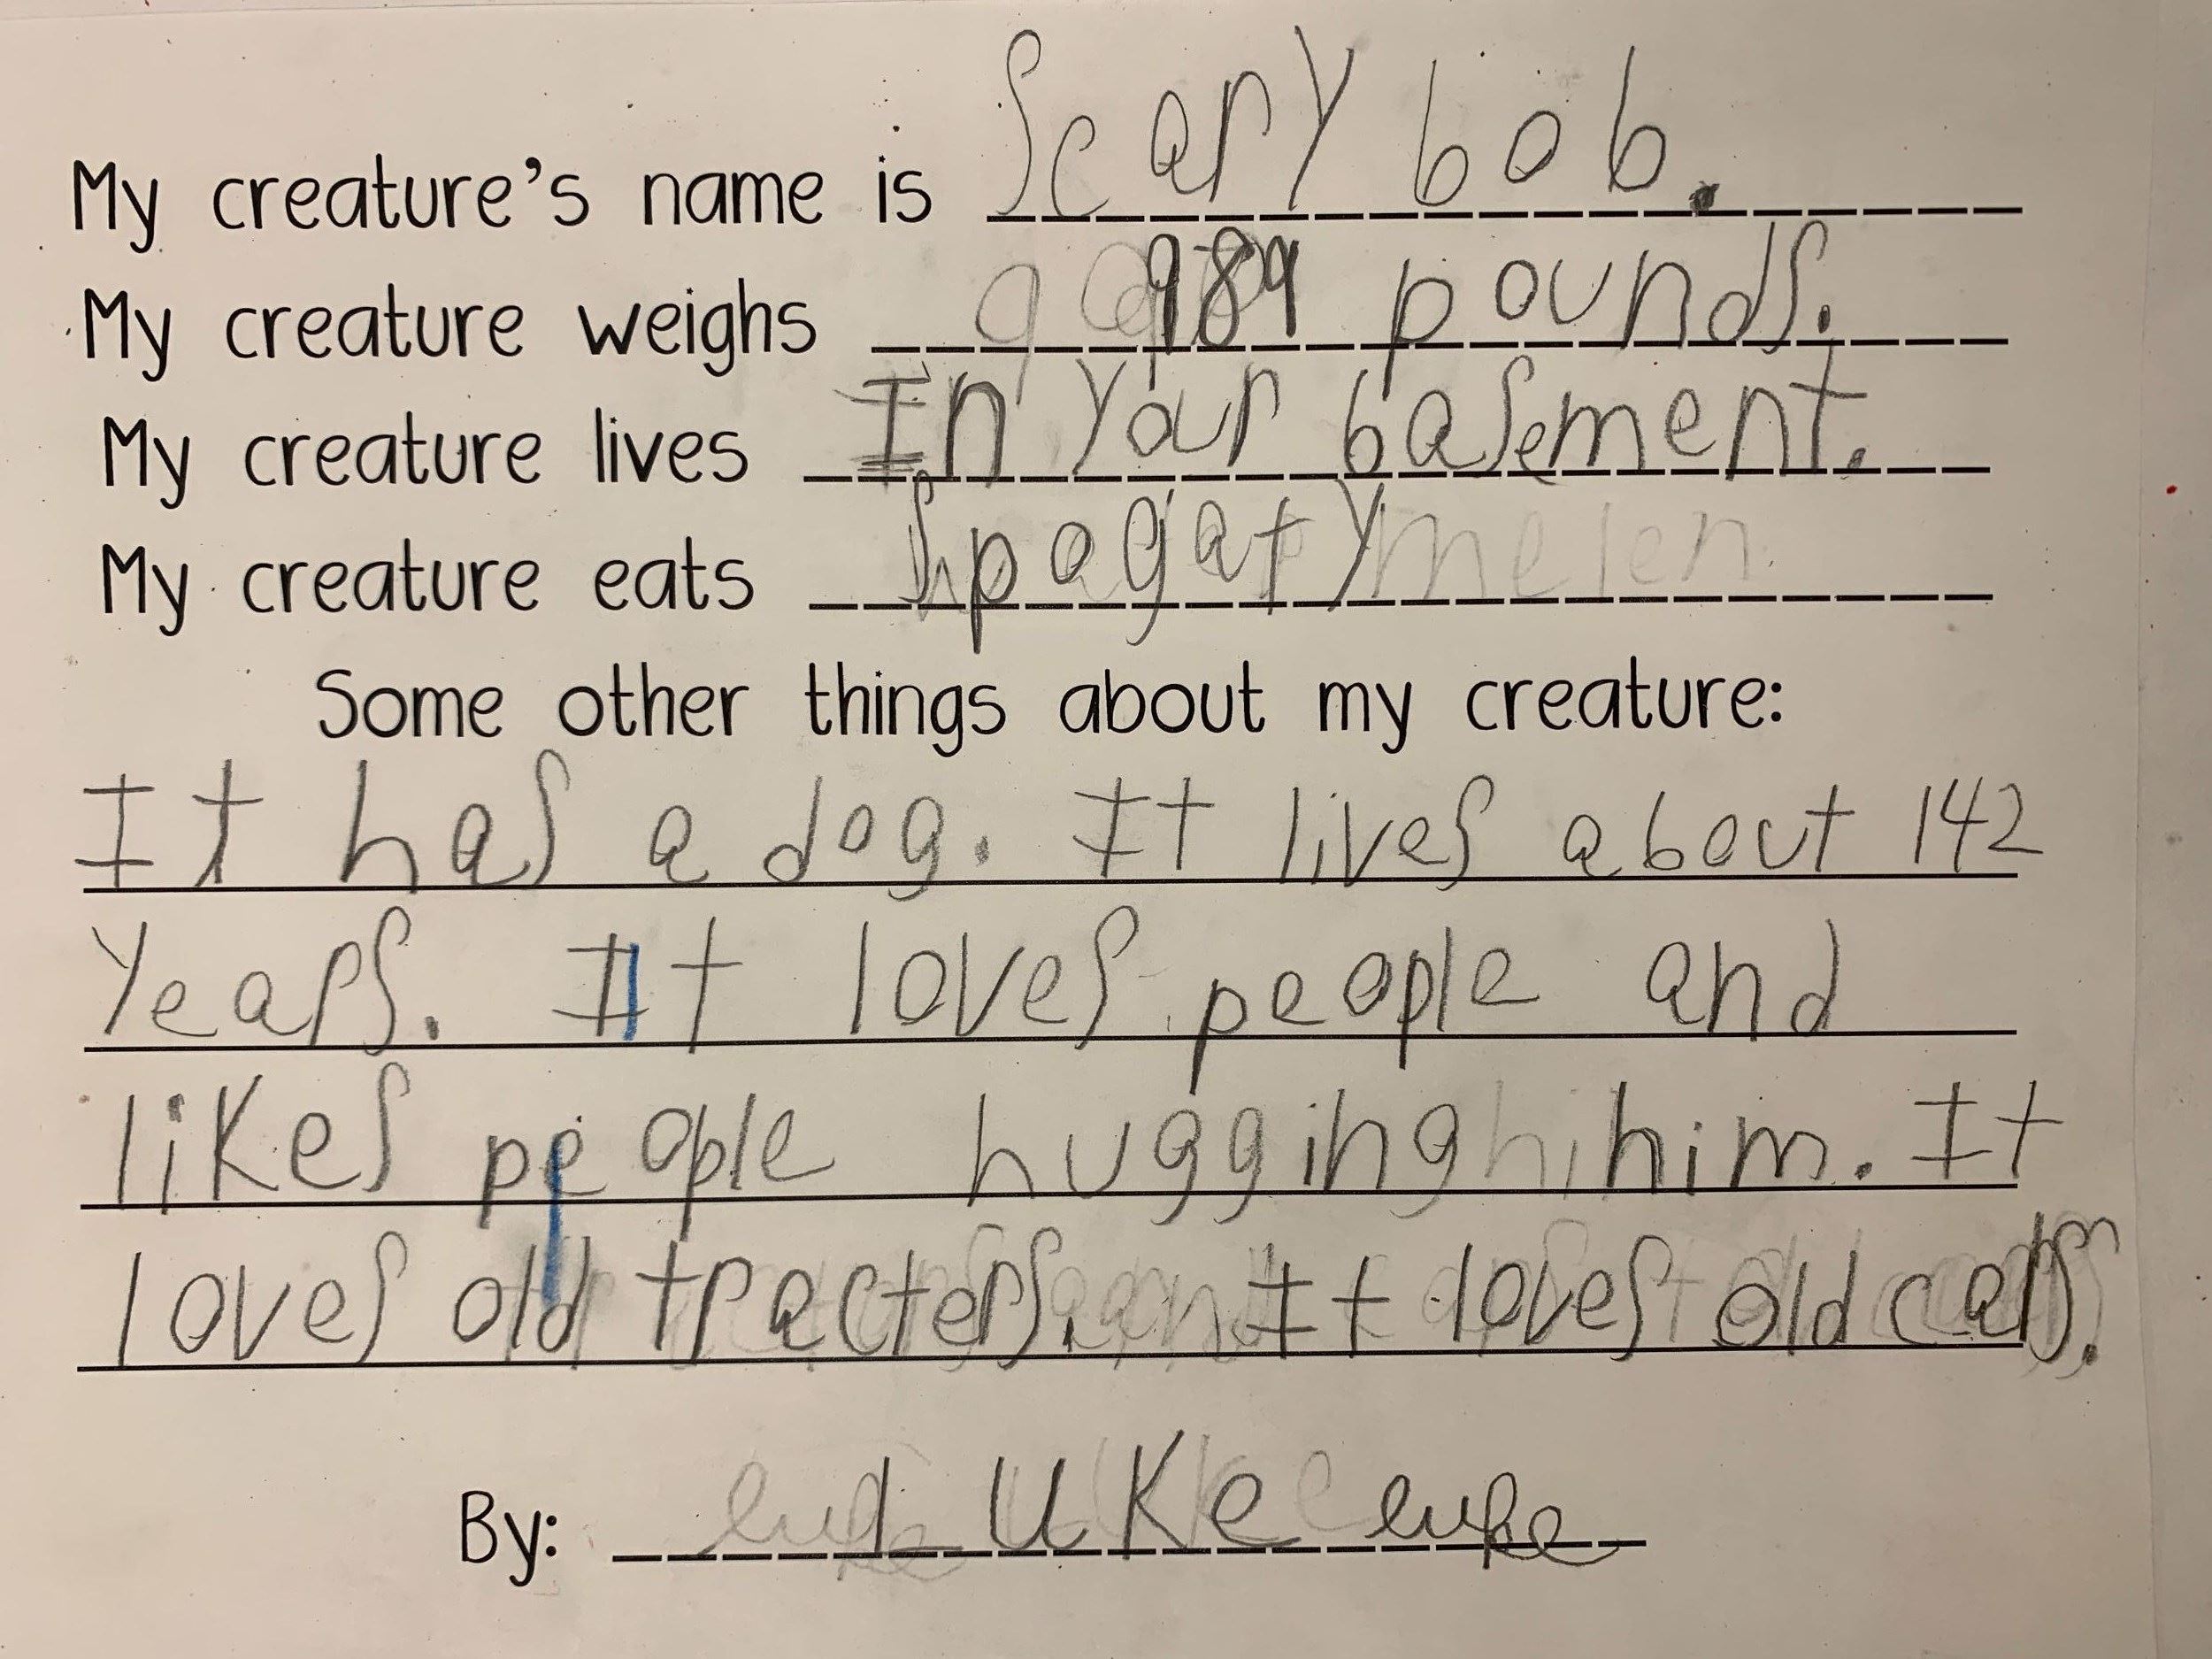 My creature's name is Scary bob.
My creature weighs 989 pounds.
My creature lives In your basement.
My creature eats Spogaty
Some other things about my creature:
It has a dog. It lives about 142
Years. It loves people and
likes people hugging him. It
loves old tracters. It loves old cars.
By: luke luke